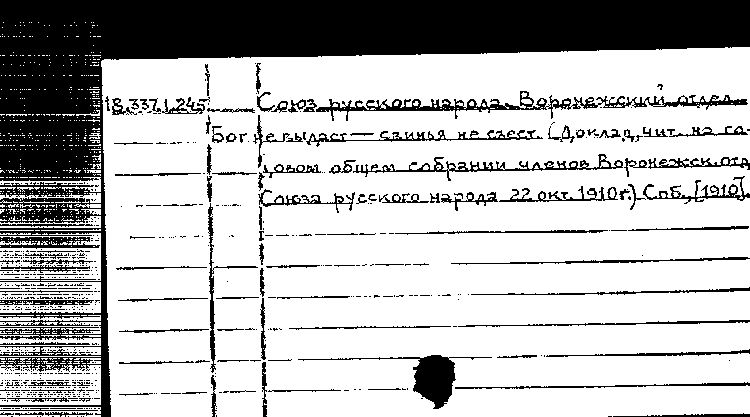 18.337.1.245 Союз русского народа. Воронежский отдел.
Бог не выдаст — свинья не съест. (Доклад, чит. на го-
довом общем собрании членов Воронежск. отд
Союза русского народа 22 окт. 1910г.) Спб., [1910].